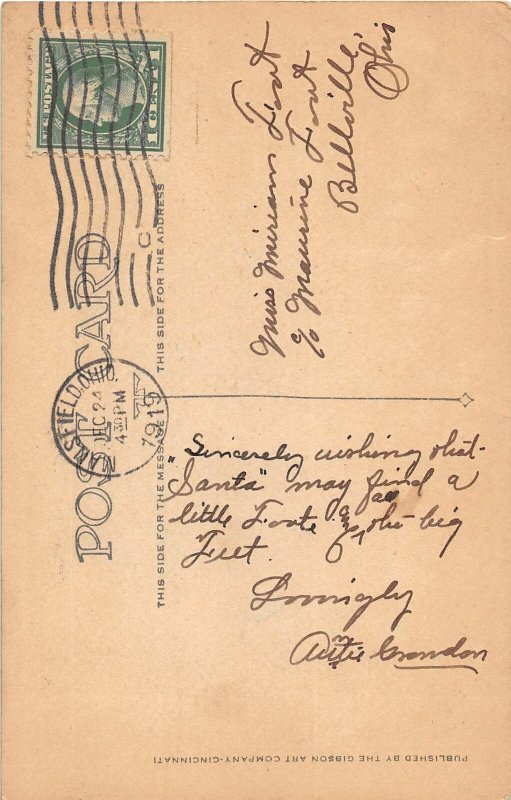 POST CARD
THIS SIDE FOR THE MESSAGE
THIS SIDE FOR THE ADDRESS
U.S. POSTAGE
1 CENT 1
MANSFIELD, OHIO.
DEC 24
4 30 PM
1919
C
Miss Miriam Foot
c/o Maurine Foot
Bellville,
Ohio
"Sincerely wishing that
Santa" may find a
little Foote big
Feet.
Lovingly
PUBLISHED BY THE GIBSON ART COMPANY-CINCINNATI